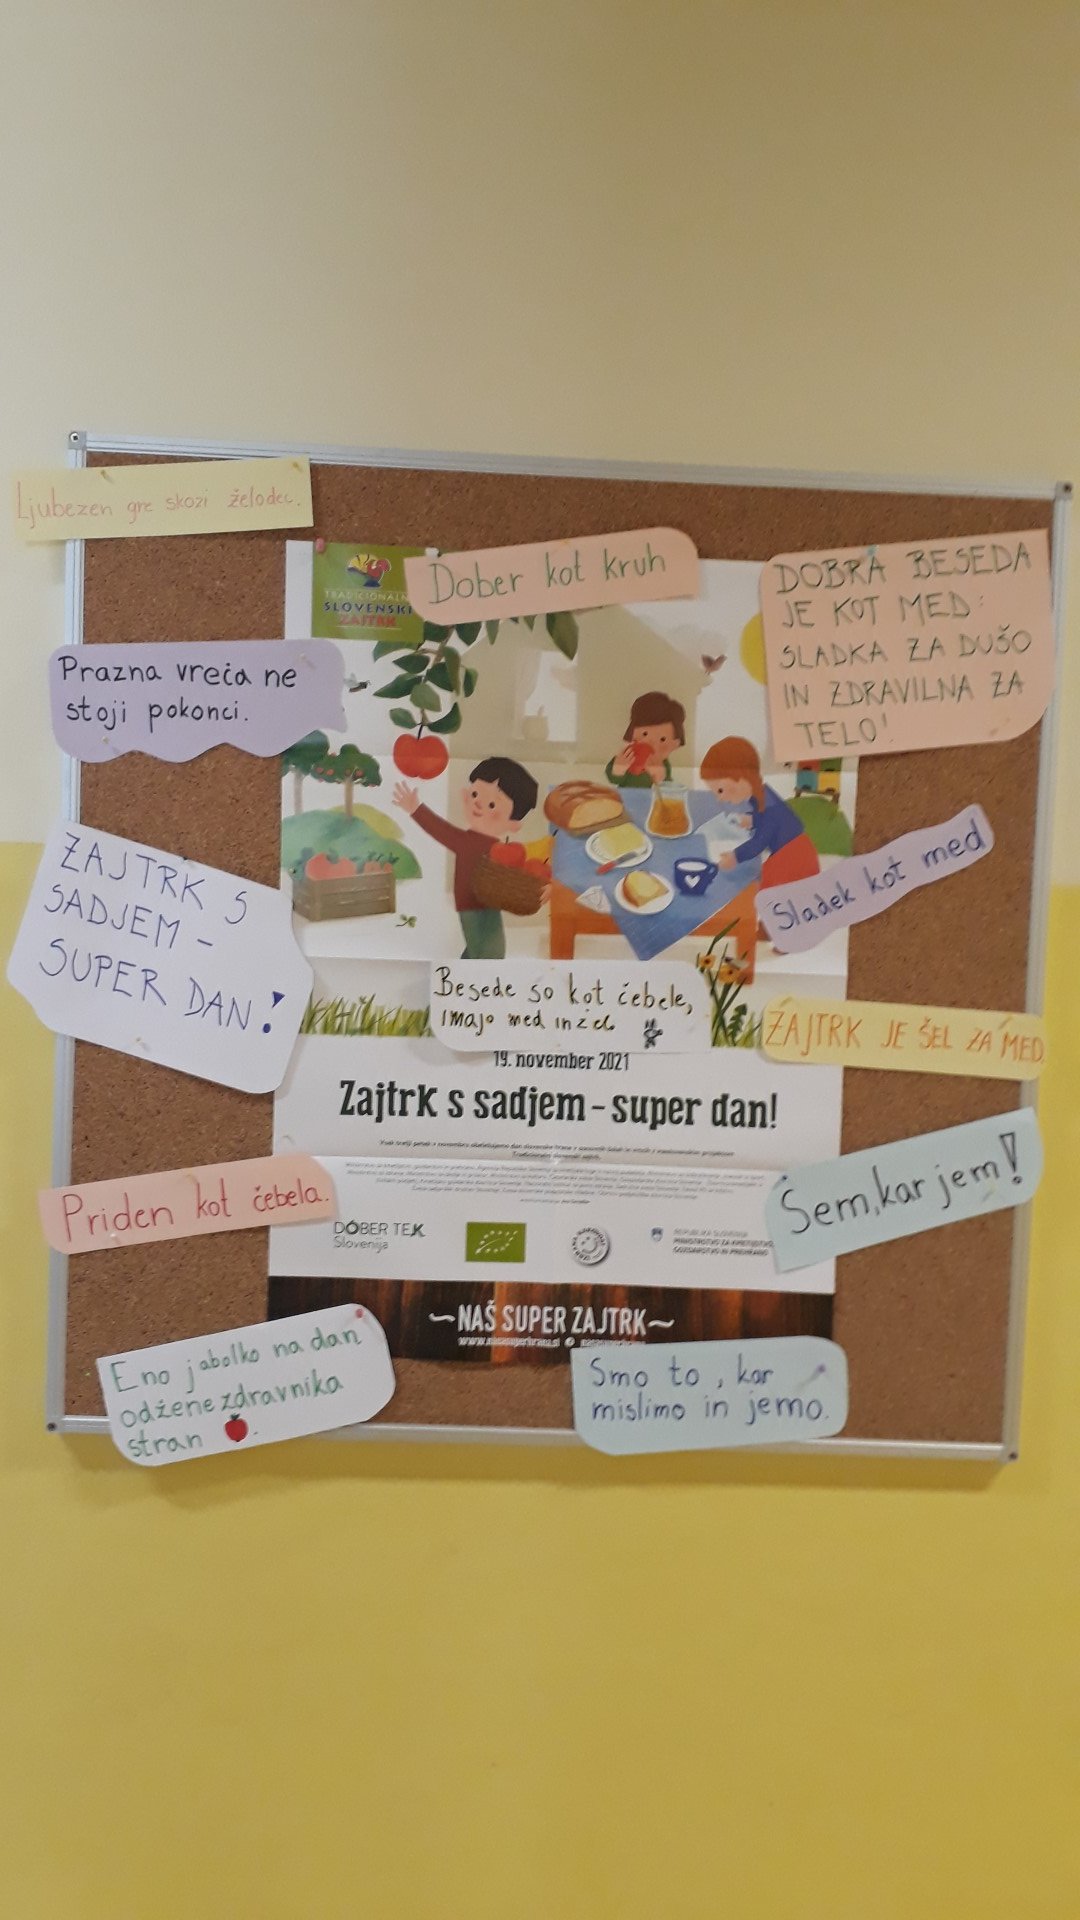 Ljubezen gre skozi želodec.
TRADICIONALNI
SLOVENSKI
ZAJTRK
Dober kot kruh
DOBRA BESEDA
JE KOT MED:
SLADKA ZA DUŠO
IN ZDRAVILNA ZA
TELO!
Prazna vreča ne
stoji pokonci.
ZAJTRK S
SADJEM -
SUPER DAN!
Sladek kot med
Besede so kot čebele,
imajo med in želo.
ZAJTRK JE ŠEL ZA MED
19. november 2021
Zajtrk s sadjem – super dan!
Vsak tretji petek v novembru obeležujemo dan slovenske hrane z
Tradicionalni slovenski zajtrk.
Priden kot čebela.
Sem, kar jem!
DOBER TEK
Slovenija
REPUBLIKA SLOVENIJA
MINISTRSTVO ZA KMETIJSTVO,
GOZDARSTVO IN PREHRANO
~NAŠ SUPER ZAJTRK~
www.nasasuperhrana.si
Eno jabolko na dan
odžene zdravnika
stran
Smo to, kar
mislimo in jemo.